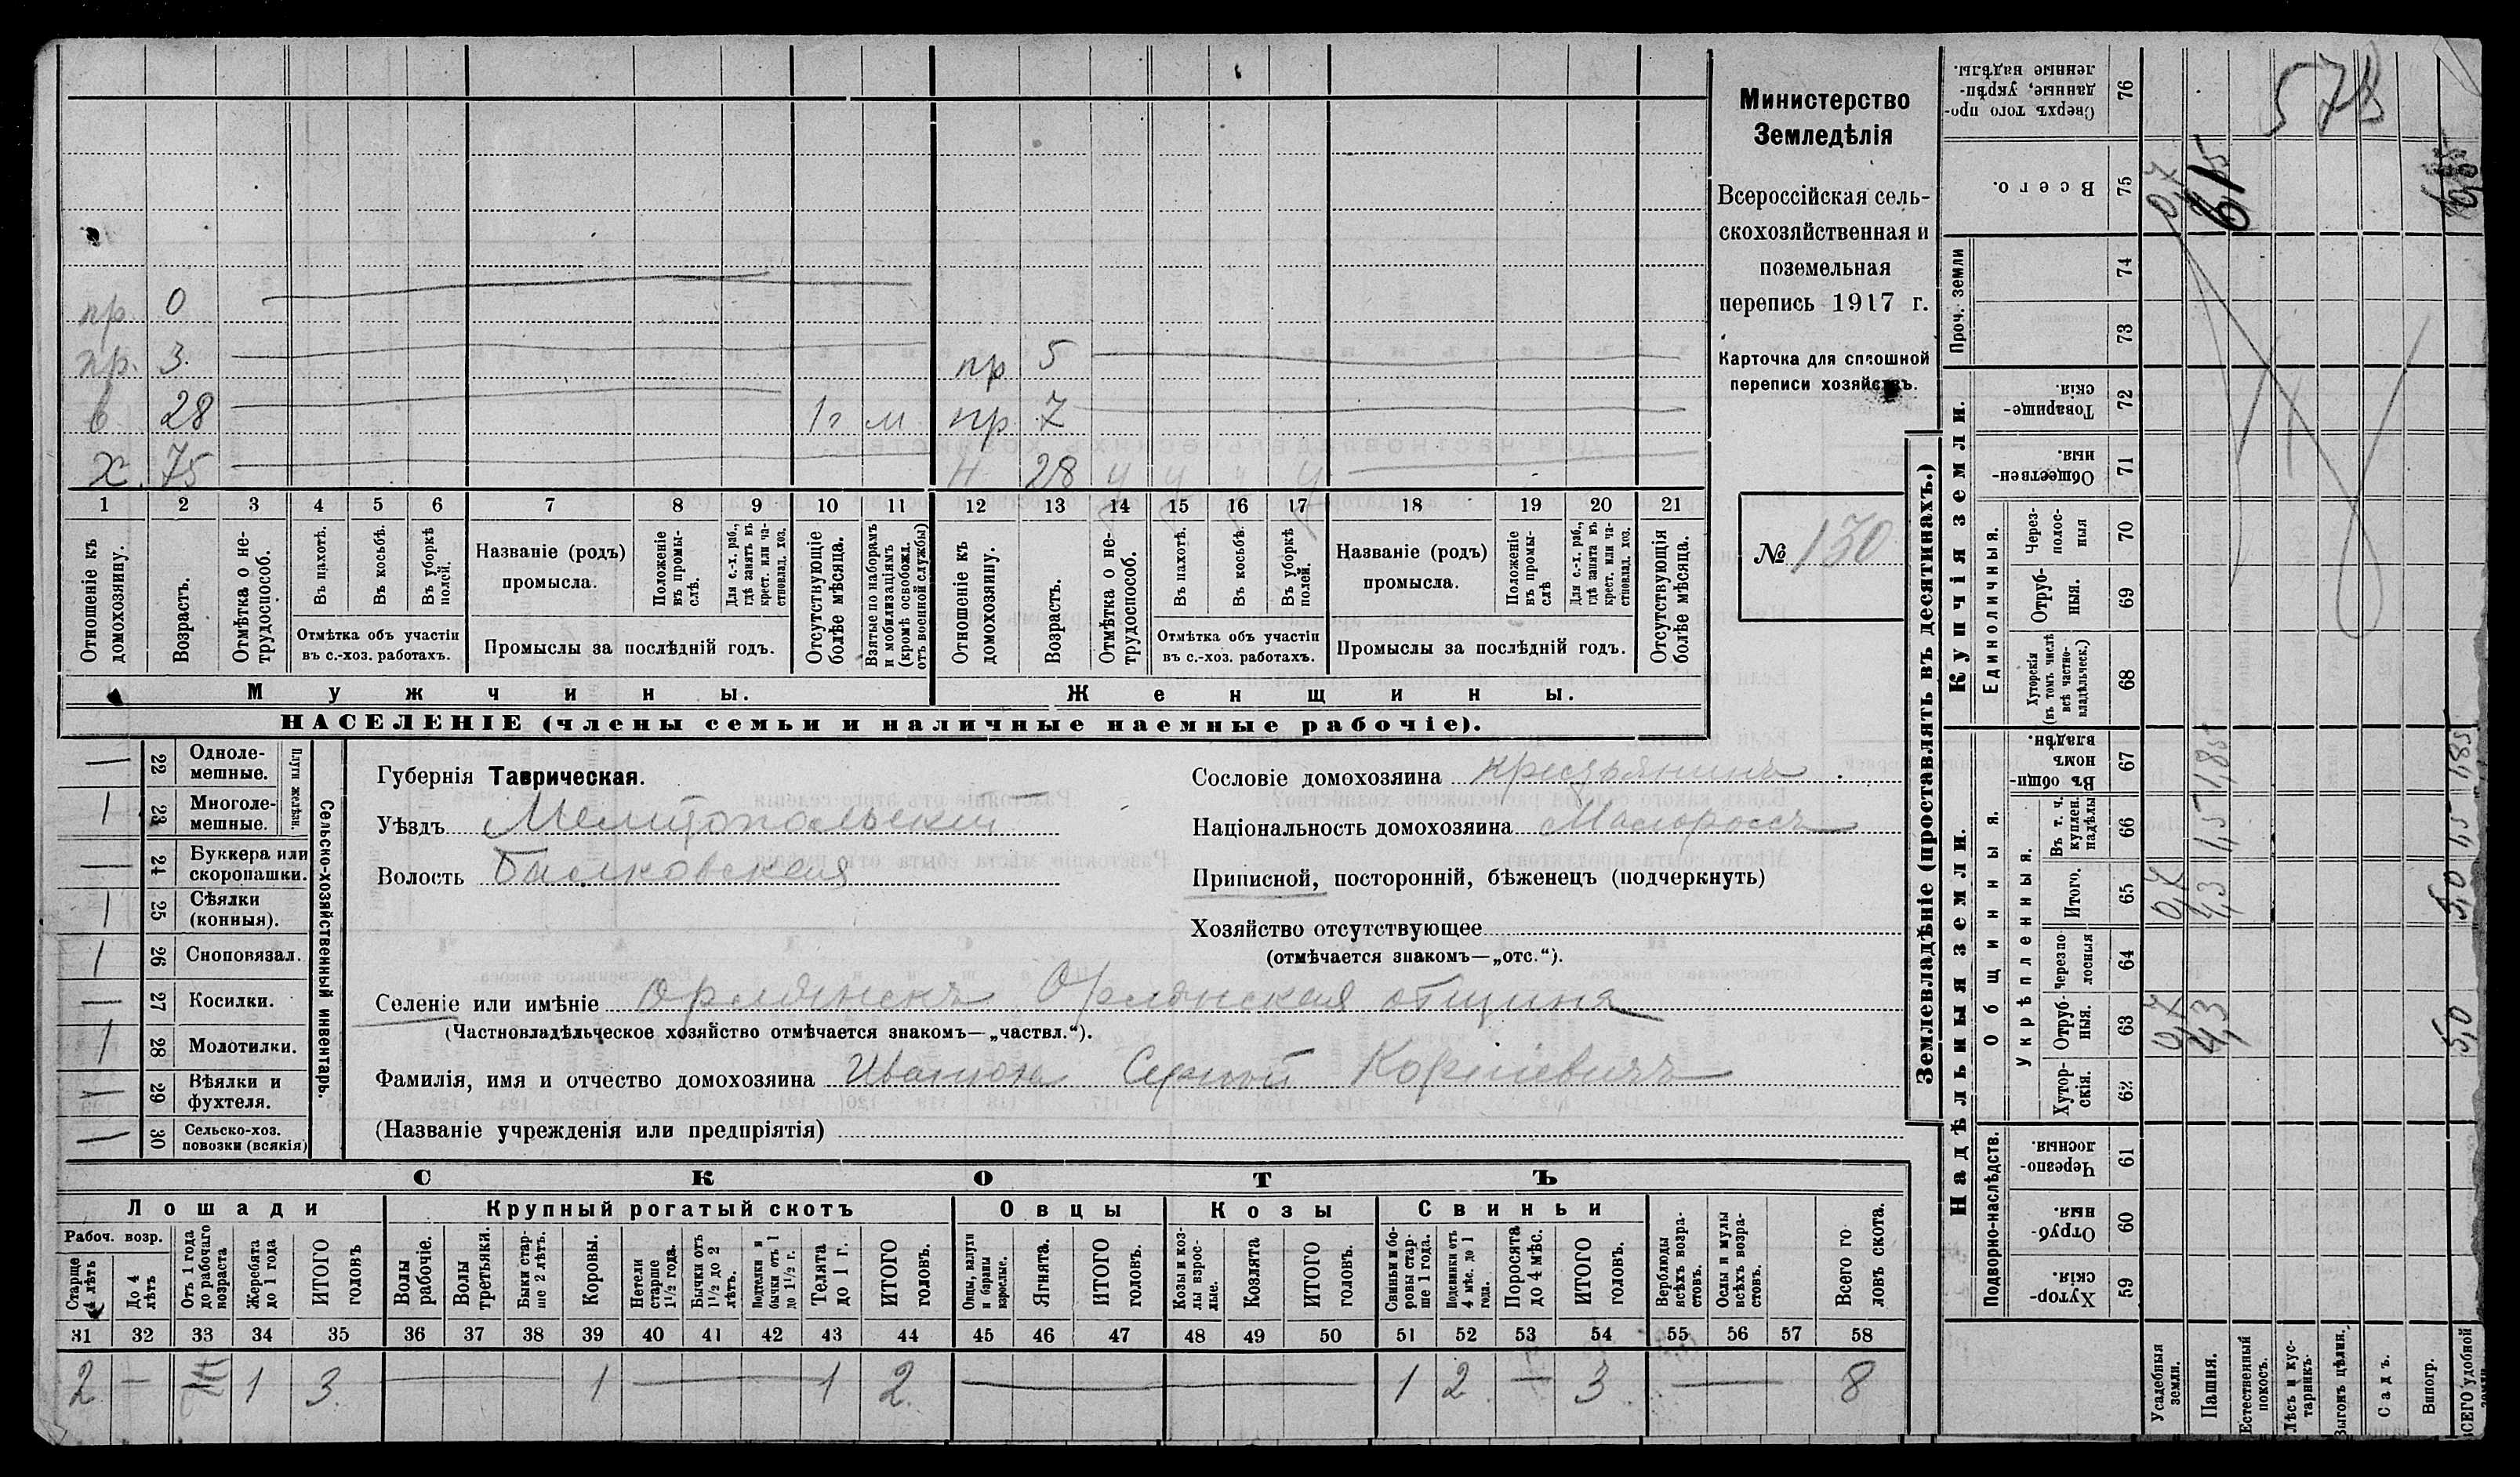 Министерство
Земледѣлія
Всероссійская сель-
скохозяйственная и
поземельная
перепись 1917 г.
Карточка для сплошной
переписи хозяйствъ.
№ 130
пр. 0
пр. 3
в 28 1 г м
х. 75
пр 5
пр 7
28
1 2 3 4 5 6 7 8 9 10 11 12 13 14 15 16 17 18 19 20 21
Отношеніе къ домохозяину.
Возрастъ.
Отмѣтка о не-трудоспособ.
Въ пахотѣ.
Въ косьбѣ.
Въ уборкѣ полей.
Отмѣтка объ участіи
въ с.-хоз. работахъ.
Названіе (родъ)
промысла.
Положеніе въ промы-слѣ.
Для с.-х. раб., гдѣ занятъ въ крест. или ча-стновлад. хоз.
Промыслы за послѣдній годъ.
Отсутствующіе болѣе мѣсяца.
Взятые по наборамъ и мобилизаціямъ (кромѣ освобожд. отъ военной службы)
Отношеніе къ домохозяину.
Возрастъ.
Отмѣтка о не-трудоспособ.
Въ пахотѣ.
Въ косьбѣ.
Въ уборкѣ полей.
Отмѣтка объ участіи
въ с.-хоз. работахъ.
Названіе (родъ)
промысла.
Положеніе въ промы-слѣ
Для с.-х. раб., гдѣ занята въ крест. или ча-стновлад. хоз.
Промыслы за послѣдній годъ.
Отсутствующія болѣе мѣсяца.
Мужчины.
Женщины.
НАСЕЛЕНІЕ (члены семьи и наличные наемные рабочіе).
Сельско-хозяйственный инвентарь.
Плуги желѣзн.
— 22 Одноле-мешные.
1 23 Многоле-мешные.
— 24 Буккера или скоропашки.
1 25 Сѣялки (конныя).
1 26 Сноповязал.
— 27 Косилки.
1 28 Молотилки.
— 29 Вѣялки и фухтеля.
30 Сельско-хоз. повозки (всякія)
Губернія Таврическая.
Уѣздъ Мелитопольскій
Волость
Сословіе домохозяина крестьянинъ
Національность домохозяина Малороссъ
Приписной, посторонній, бѣженецъ (подчеркнуть)
Хозяйство отсутствующее
(отмѣчается знакомъ—„отс.“).
Селеніе или имѣніе Орлянскъ Орлянская община
(Частновладѣльческое хозяйство отмѣчается знакомъ—„частвл.“).
Фамилія, имя и отчество домохозяина
(Названіе учрежденія или предпріятія)
СКОТЪ
Лошади
Крупный рогатый скотъ
Овцы
Козы
Свиньи
Рабоч. возр.
Старше 4 лѣтъ
До 4 лѣтъ
Отъ 1 года до рабочаго возраста
Жеребята до 1 года
ИТОГО головъ
Волы рабочіе.
Волы третьяки.
Быки стар-ше 2 лѣтъ.
Коровы.
Нетели старше 1½ года.
Бычки отъ 1½ до 2 лѣтъ.
Подтелки и бычки отъ 1 до 1½ г.
Телята до 1 г.
ИТОГО головъ.
Овцы, валухи и бараны взрослые.
Ягнята.
ИТОГО головъ.
Козы и коз-лы взрос-лые.
Козлята
ИТОГО головъ.
Свиньи и бо-ровы стар-ше 1 года.
Подсвинки отъ 4 мѣс. до 1 года.
Поросята до 4 мѣс.
ИТОГО головъ.
Верблюды всѣхъ возра-стовъ.
Ослы и мулы всѣхъ возра-стовъ.
Всего го ловъ скота.
31 32 33 34 35 36 37 38 39 40 41 42 43 44 45 46 47 48 49 50 51 52 53 54 55 56 57 58
2 — 1 3 — 1 — 1 2 — 1 2 — 3 — 8
Землевладѣніе (проставлять въ десятинахъ.)
Купчія земли.
Надѣльныя земли.
578
Сверхъ того про-данные, укрѣп-ленные надѣлы. 76
Всего. 75 0,7
Проч. земли 74
73
Товарище-скія. 72
Обществен-ныя. 71
Единоличныя.
Через-полос-ныя 70
Отруб-ныя. 69
Хуторскія (въ томъ числѣ всѣ частно-владѣльческ.) 68
Общинныя.
Въ общин номъ владѣн. 67 1,85 4,85
Укрѣпленныя.
Въ т. ч. куплен. надѣлы 66
Итого. 65 0,7 4,3 5,0
Черезпо лосная 64
Отруб-ныя. 63 0,7 4,3 5,0
Хутор-скія. 62
Подворно-наслѣдств.
Черезпо-лосныя. 61
Отруб-ныя. 60
Хутор-скія. 59
Усадебныя земли.
Пашня.
Естественный покосъ.
Лѣсъ и кус-тарникъ.
Выгонъ цѣлин.
Садъ.
Виногр.
ВСЕГО удобной